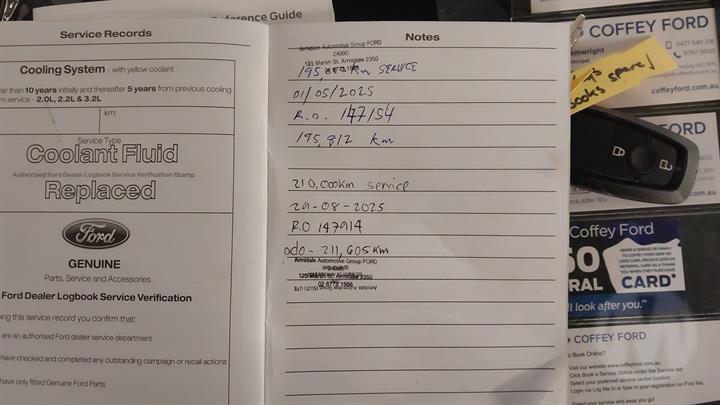 Reference Guide
Service Records
Cooling System - with yellow coolant
ter than 10 years initially and thereafter 5 years from previous cooling
m service - 2.0L, 2.2L & 3.2L
km:
Service Type
Coolant Fluid
Authorised Ford Dealer Logbook Service Verification Stamp
Replaced
Ford
GENUINE
Parts, Service and Accessories
Ford Dealer Logbook Service Verification
ing this service record you confirm that:
are an authorised Ford dealer service department
have checked and completed any outstanding campaign or recall actions
have only fitted Genuine Ford Parts
Notes
Armidale Automotive Group FORD
24990
125 Marsh St. Armidale 2350
195 Km SERVICE
01/05/2025
R.O. 147154
195,812 km
210,000km service
29-08-2025
R.O 147914
odo- 211,605km
Armidale Automotive Group FORD
24990
125 Marsh St. Armidale 2350
02 6772 1566
COFFEY FORD
inwright
0477 545 216
9767 0600
coffeyford.com.au
books spare!
FORD
m.au
Coffey Ford
50
RAL
REFER A FRIEND OR FAMILY
TO COFFEY FORD NEW OR
USED CARS, RECEIVE $250.00
REFERRAL CARD AS A THANK
YOU WHEN THEY PURCHASE.
CARD*
ll look after you."
COFFEY FORD
o Book Online?
Visit our website www.coffeyford.com.au
Click Book a Service Online under the Service tab
Select your preferred service centre location
Login via Log Me In or type in your registration on Find Me
Select your service and away you go!